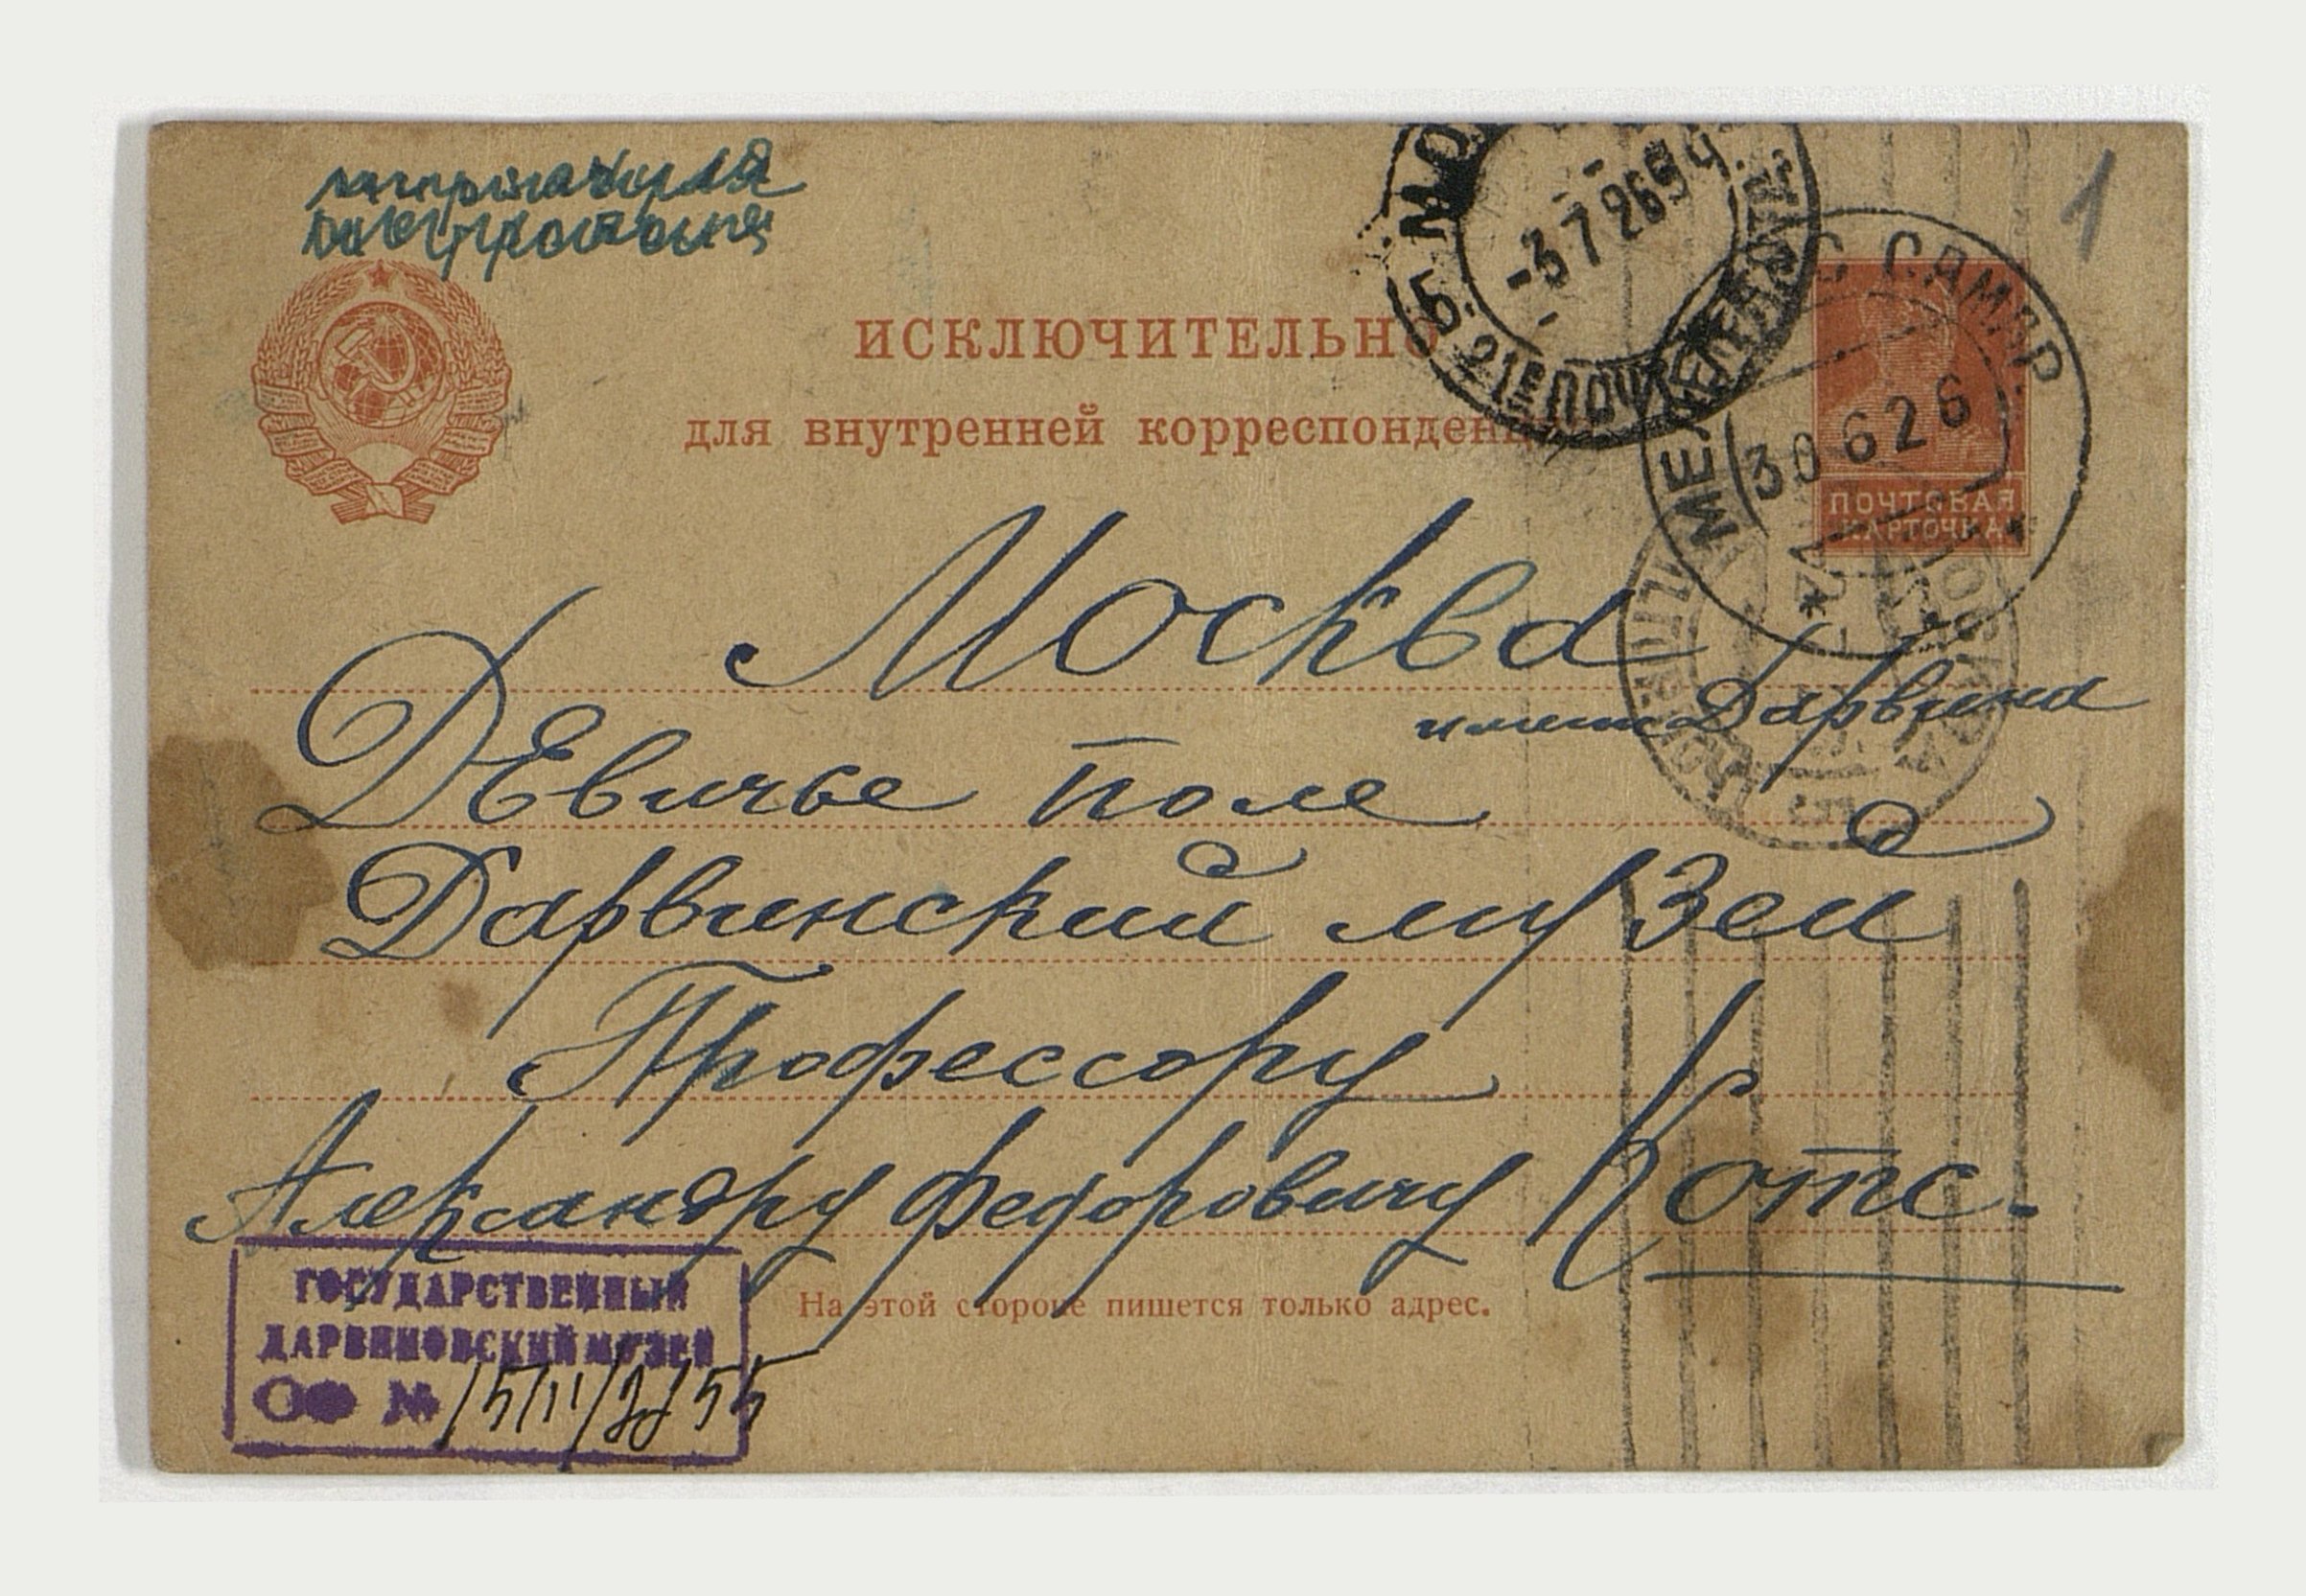 1
ИСКЛЮЧИТЕЛЬНО
для внутренней корреспонденц
-3 7 26 9 Ч.
21Е ПОЧ
МЕЛЕКЕСС САМАР
30 6 26
ПОЧТОВАЯ
КАРТОЧКА
МОСКВА
Москва
имени Дарвина
Девичье поле
Дарвинский музей
Профессору
Александру Федоровичу Котс.
На этой стороне пишется только адрес.
ГОСУДАРСТВЕННЫЙ
ДАРВИНОВСКИЙ МУЗЕЙ
ОФ №